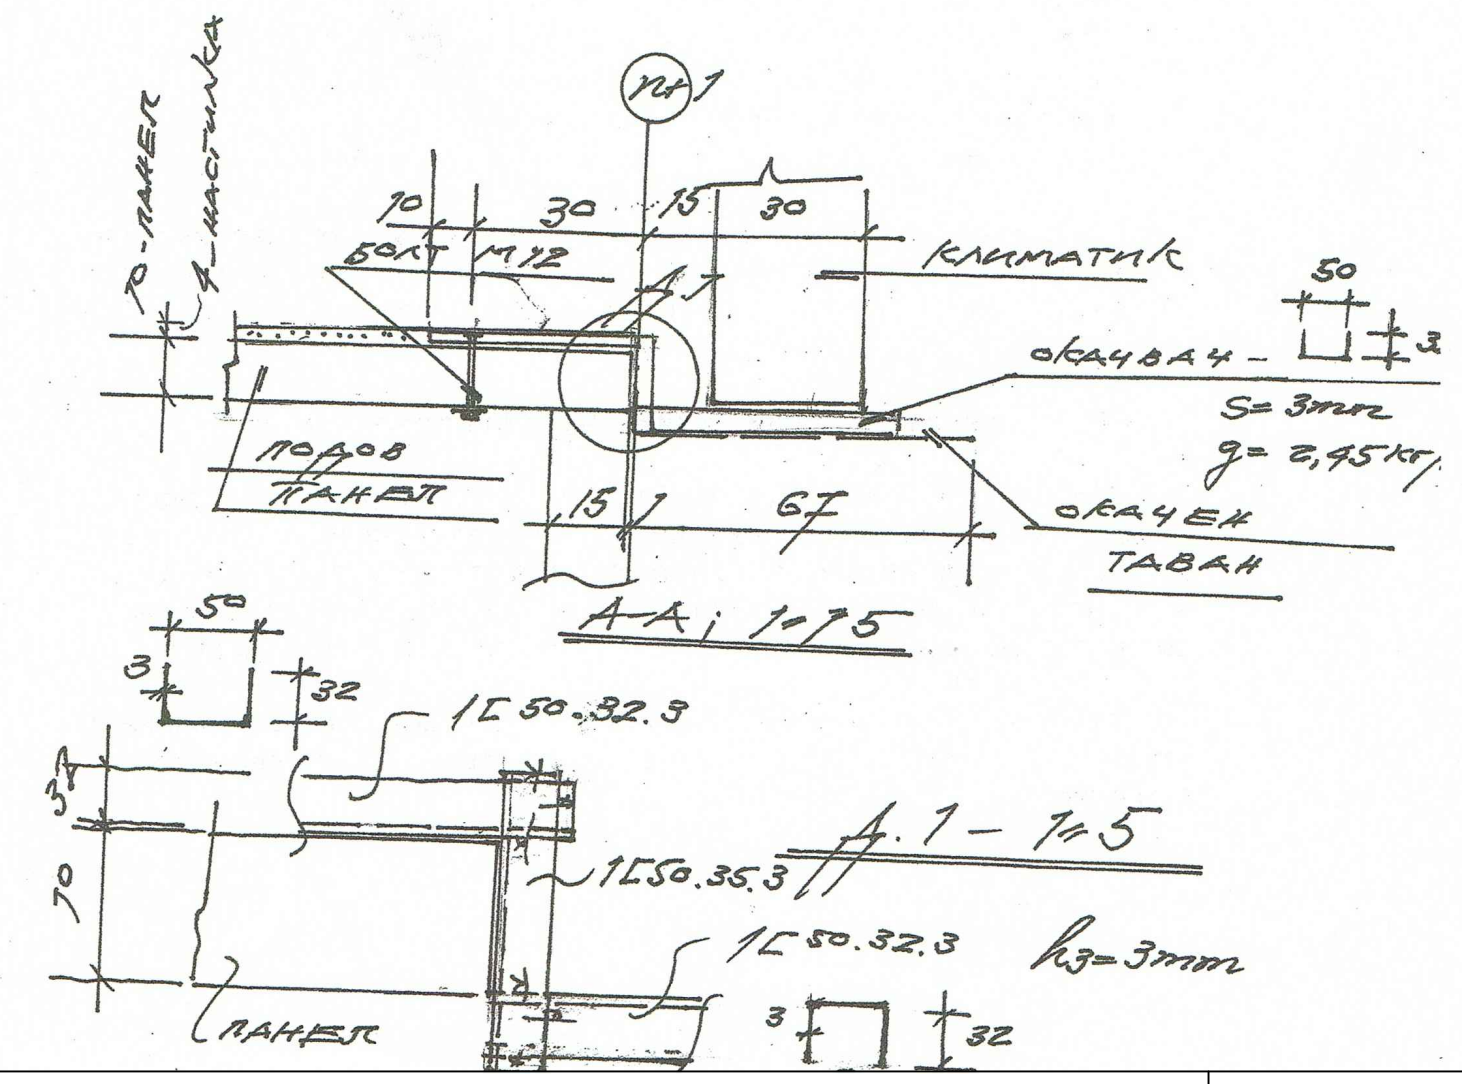 70-ПАНЕЛ
4-НАСТИЛКА
10 30 15 30
БОЛТ М12
КЛИМАТИК
50
ОКАЧВАЧ -
S= 3mm
ПОДОВ
ПАНЕЛ
15 67
ОКАЧЕН
ТАВАН
А-А; 1:15
50
3
32
1[50.32.3
32
А.1- 1:5
1[50.35.3
70
1[50.32.3
h3=3mm
ПАНЕЛ
3
32